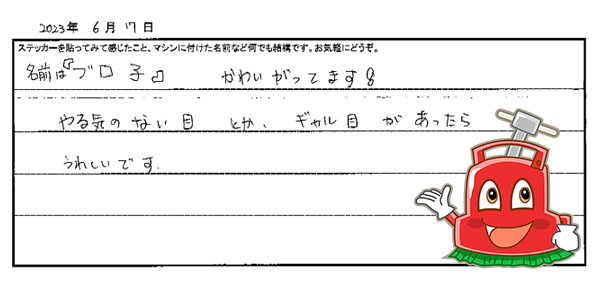 2023年 6月 17日
ステッカーを貼ってみて感じたこと、マシンに付けた名前など何でも結構です。お気軽にどうぞ。
名前は『ブロ子』 かわいがってます!
やる気のない目 とか、ギャル目 があったら
うれしいです.